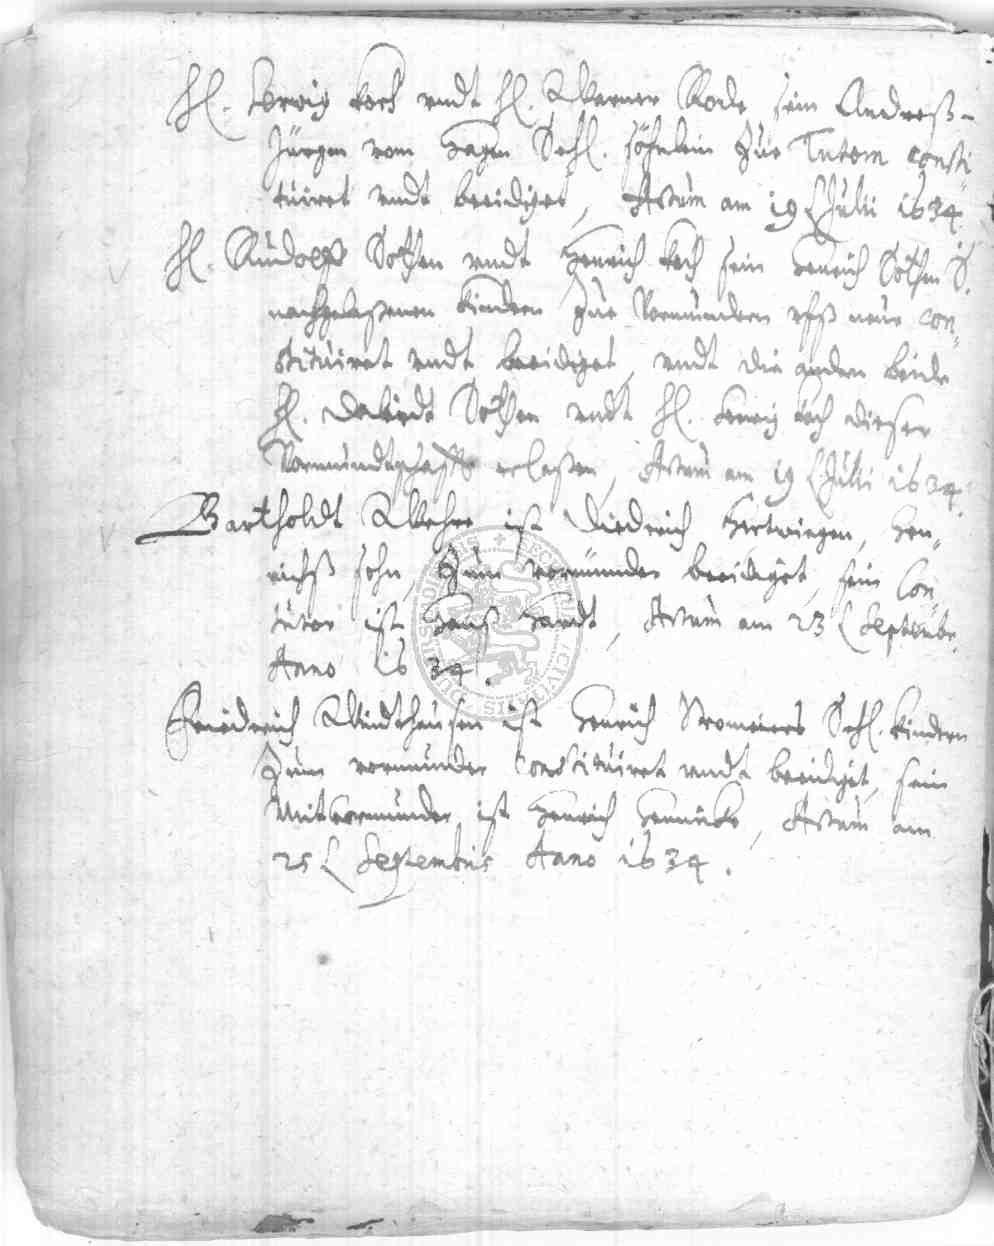 H. Henrig Koch undt H. Warner Rode sein Andreß
Jürgen vom Hagen Sehl. söhnlein zue Tutorn consti
tuiret undt beeidiget, Actum am 19 Julii 1634.
H. Rudolff Bothen undt Henrich Koch sein Henrich Bothen S.
nachgelaßenen Kindern zue Vormündern uffs neue con
stituiret undt beeidiget, undt die andern beide
H. Bothen undt H. Henrig Koch dieser
Vormundtschafft erlaßen, Actum am 19 Julii 1634.
Bartholdt Wehre ist Diedrich Hertwigen, Hen
richß sohn, zum vormünder beeidiget, sein Con
tutor ist Hanß Handt, Actum am 23 Septembr.
Anno 1634.
Friedrich Windthausen ist Henrich Stromeiers Sehl. Kindern
zum vormünder Constituiret undt beeidiget, sein
Mitvormünder ist Henrich Hennicke, Actum am
25 Septembris Anno 1634.